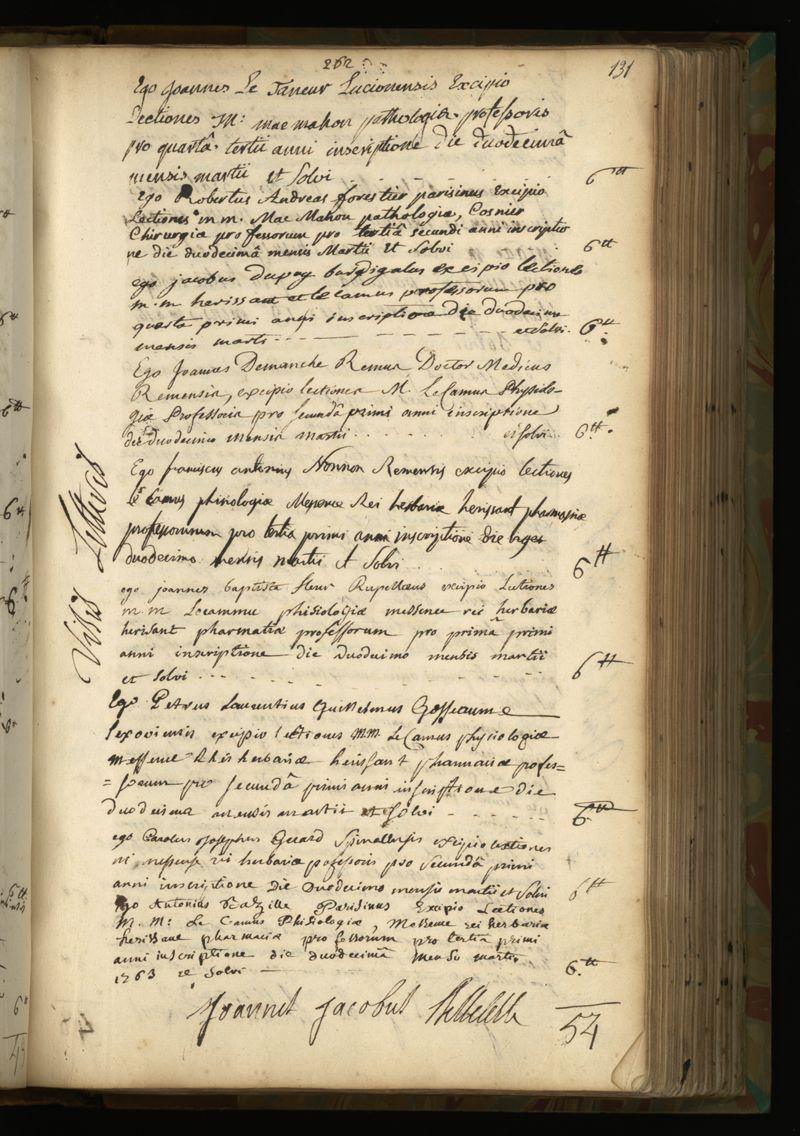 262
131
Ego Joannes Le Taneur Lucionensis Excipio
Lectiones M: mac mahon pathologiæ professoris
pro quartâ tertii anni inscriptione die duodecimâ
mensis martii et Solvi 6tt
Ego Robertus Andreas forestier parisinus Excipio
Lectiones m m. Mac Mahon pathologiæ, Cosnier
Chirurgiæ professorum pro tertiâ secundi anni inscriptio
ne die duodecimâ mensis Martii Et Solvi 6tt
ego jacobus dupuy burdigalus excipio lectiones
m.m herissant et le camus professorum pro
quarta primi anni inscriptione die duodecima
mensis marti et solvi 6tt
Ego Joannes Demanche Remus Doctor Medicus
Remensis, excipio lectiones M. Le Camus Physiolo-
giæ Professoris pro secundâ primi anni inscriptione
die duodecimo mensis martii et solvi 6tt
Ego franciscus Nonnon Remensis excipio lectiones
le Camus phisiologiæ Rei herbariæ herissant pharmaciæ
professorum pro tertia primi anni inscriptione die
duodecimo mensis martii et Solvi 6tt
Visis Litteris
ego joannes baptista fleur Rupellæus excipio Lectiones
m.m Lecammu phisiologiæ messence rei herbariæ
herisant pharmatiæ professorum pro primâ primi
anni inscriptione die duodecimo mensis martii
et solvi 6tt
Ego Petrus Laurentius Guillelmus Gosseaume
lexoviensis excipio lectiones MM Le Camus physiologiæ
messence Rhei herbariæ herissant pharmaciæ profes=
=sorum pro secundâ primi anni inscriptione die
duodecima mensis martii et solvi 6tt
ego Carolus Josephus Guard Spinallensis excipio lectiones
m messence rei herbariæ professoris pro secundâ primi
anni inscriptione die duodecimo mensis martii et solvi 6tt
Ego Antonius Parisinus Excipio Lectiones
M. M: Le Camus Phisiologiæ, Messence rei herbariæ
herissane pharmaciæ professorum pro tertiâ primi
anni inscriptione die duodecimâ mensis martii
1763 et Solvi 6tt
Joannes Jacobus
54